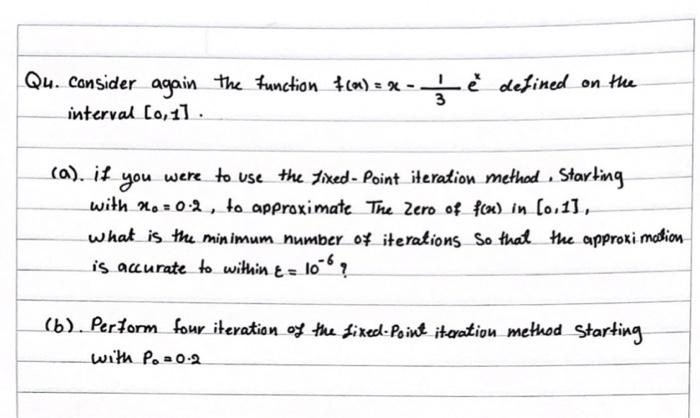 Q4. Consider again the function f(x) = x - 1/3 e^x defined on the
interval [0,1].
(a). if you were to use the fixed-Point iteration method. Starting
with x₀ = 0.2, to approximate The Zero of f(x) in [0,1],
what is the minimum number of iterations So that the approximation
is accurate to within ε = 10⁻⁶ ?
(b). Perform four iteration of the fixed-Point iteration method Starting
with P₀ = 0.2